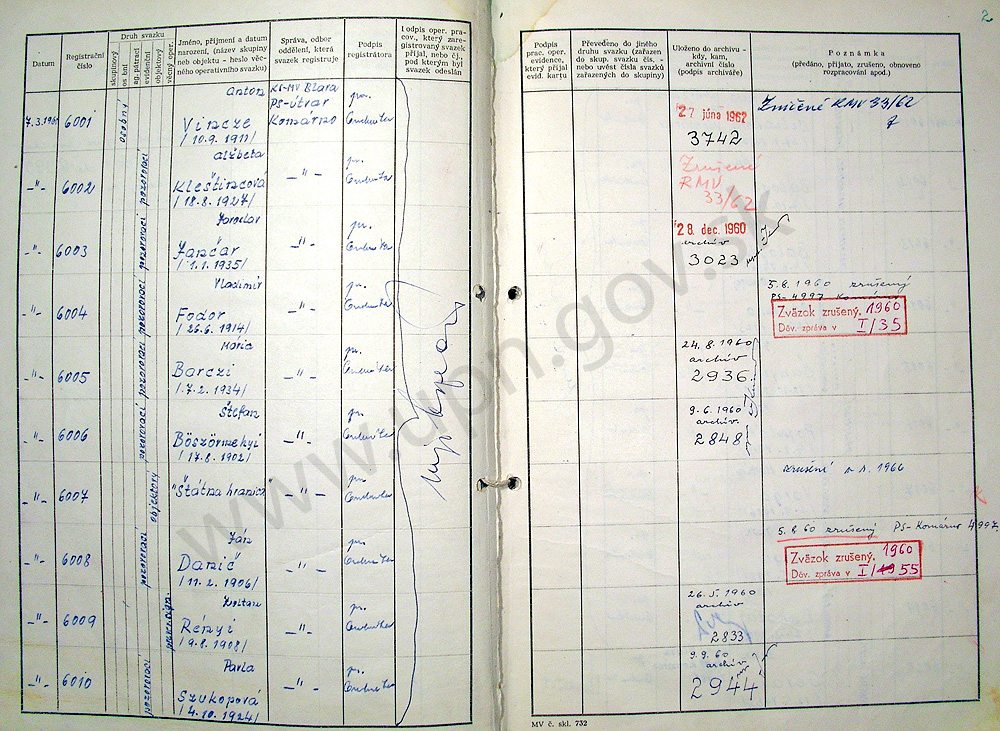 2
Druh svazku
Datum
Registrační číslo
skupinový
osobní
ag. pátrací
evidenční
objektový
věcný oper.
Jméno, příjmení a datum
narození, (název skupiny
neb objektu - heslo věc-
ného operativního svazku)
Správa, odbor
oddělení, která
svazek registruje
Podpis
registrátora
Podpis oper. prac-
cov., který zare-
gistrovaný svazek
přijal, nebo čj.,
pod kterým byl
svazek odeslán
Podpis
prac. oper.
evidence,
který přijal
evid. kartu
Převedeno do jiného
druhu svazku (zařazen
do skup. svazku čís. -
nebo uvést čísla svazků
zařazených do skupiny)
Uloženo do archivu -
kdy, kam,
archivní číslo
(podpis archiváře)
Poznámka
(předáno, přijato, obnoveno
rozpracování apod.)
7.3.1960 6001 osobný Anton
Vincze
/10.9.1911/
KS-MV Blava
PS-útvar
Komárno
pr.
27 júna 1962
3742
Zničené RMV 33/62
-"- 6002 pozorovací Alžbeta
Kleštincová
/18.8.1927/
-"- pr.
Zrušené
RMV
33/62
-"- 6003 pozorovací Jaroslav
Jančár
/1.1.1935/
-"- pr.
28. dec. 1960
archív
3023
-"- 6004 pozorovací Vladimír
Fodor
/26.6.1914/
-"- pr.
5.8.1960 zrušený
PS-4997 Komárno
Zväzok zrušený. 1960
Dôv. zpráva v I/35
-"- 6005 pozorovací Mária
Barczi
/7.2.1934/
-"- pr.
24.8.1960
archív
2936
-"- 6006 pozorovací Štefan
Böszörmenyi
/17.8.1902/
-"- pr.
9.6.1960
archív.
2848
-"- 6007 objektový "Štátna hranica"
-"- pr.
zrušený v r. 1966
-"- 6008 pozorovací Ján
Darič
/11.2.1906/
-"- pr.
5.8.60 zrušený PS-Komárno 4997.
Zväzok zrušený. 1960
Dôv. zpráva v I/55
-"- 6009 Zoltan
Rényi
/9.8.1908/
-"- pr.
26.5.1960
archív
2833
-"- 6010 pozorovací Pavla
Szukopová
/4.10.1924/
-"- pr.
9.9.60
archív.
2944
MV č. skl. 732
www.upn.gov.sk